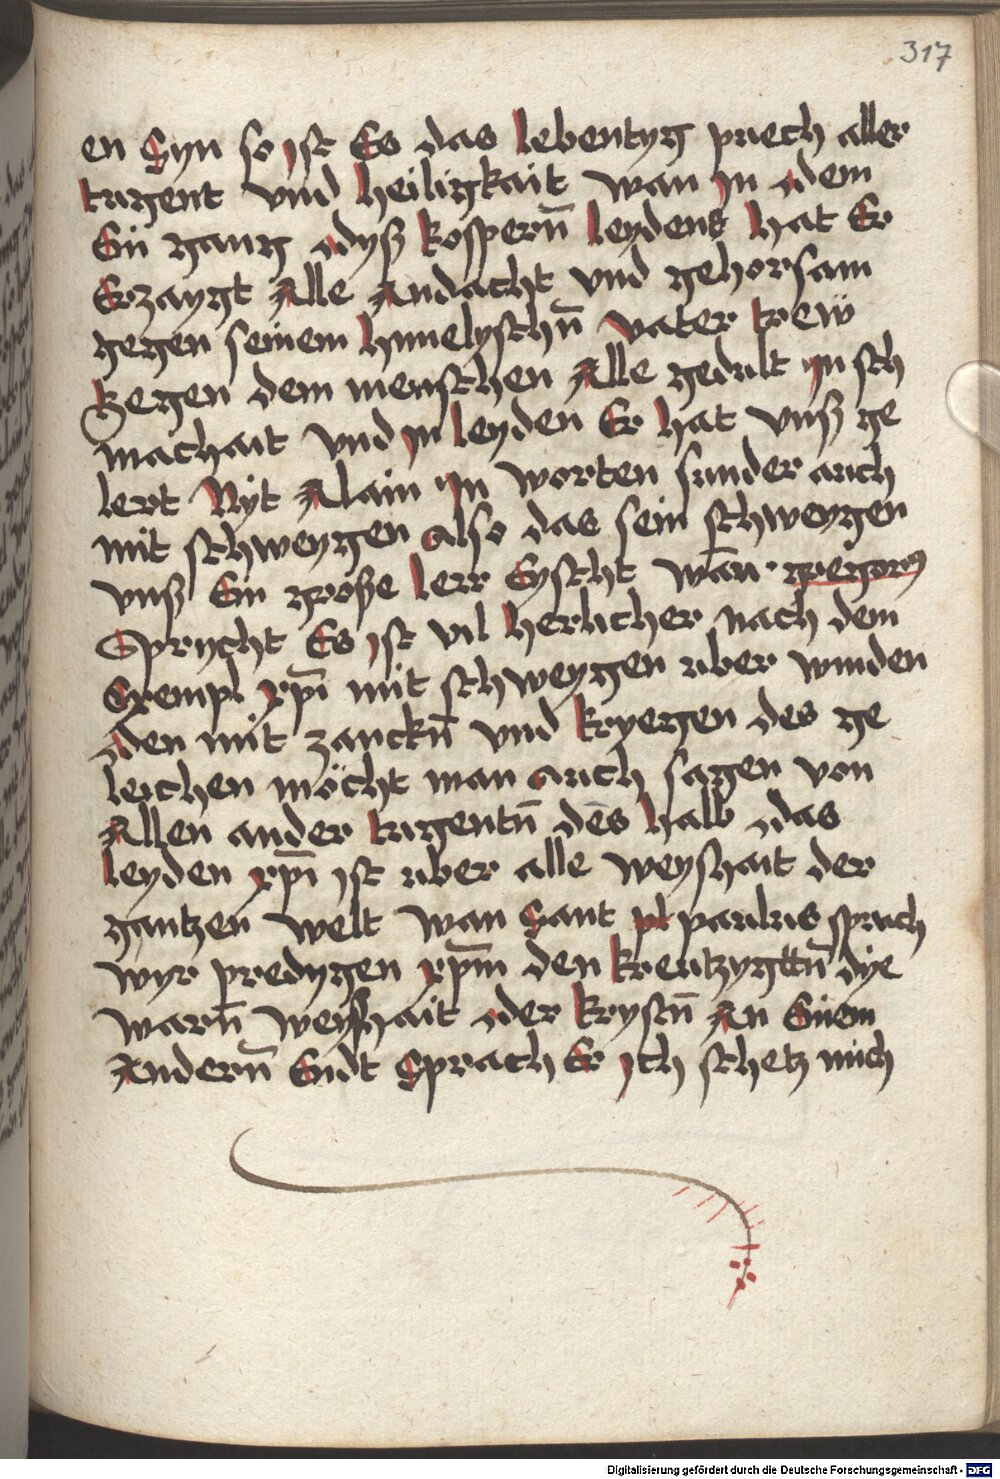 317
en Syn so ist Es das lebentyg puech aller
tugent vnd heiligkait wan In dem
Ein gang dyß kospern̄ leydens hat Er
Erzaygt Alle Andacht vnd gehorsam
gegen seinem himelyschn̄ vater trew
gegen dem menschen Alle gedult In sch
machait vnd In leyden Er hat vnß ge
lert Nyt Alain In worten sunder auch
mit schweygen also das sein schweygen
vnß Ein große lerr Gyscht wan̄ · gregorius
Sprycht Es ist vil herlicher nach dem
Exempl xp̄i mit schweygen uber winden
den mit zanckn̄ vnd kryegen des ge
leichen möcht man auch sagen von
Allen ander tugentn̄ des halb das
leyden xp̄i ist uber alle weyshait der
gantzen welt wan Sant pl paulus spruch
wyr predygen xp̄m den kreutzygttn̄ dye
warn̄ weyshait der krystn̄ An Einem
Andern̄ Endt Sprach Er Ich schetz mich
Digitalisierung gefördert durch die Deutsche Forschungsgemeinschaft - DFG